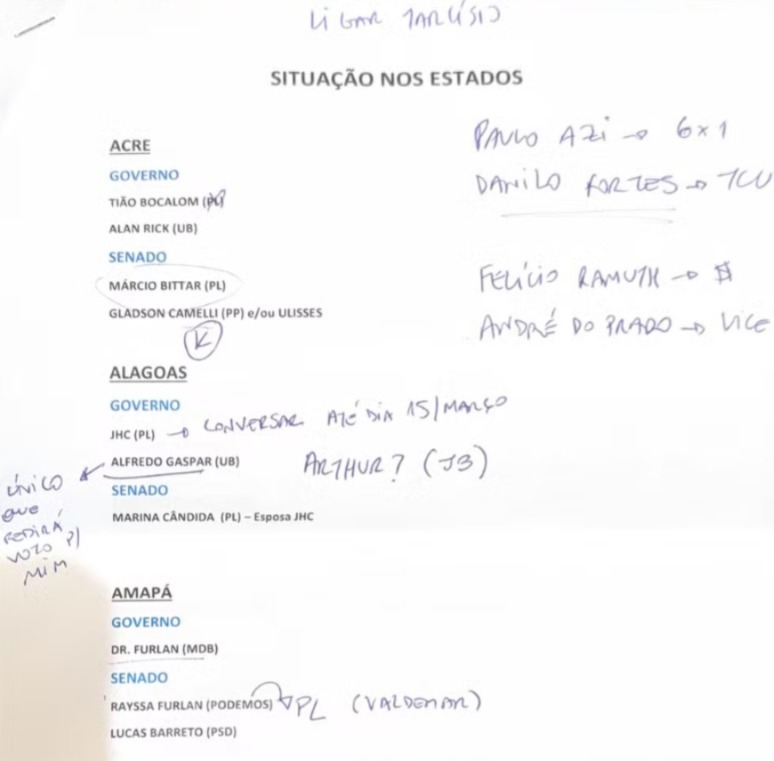 LIGAR TARCÍSIO
SITUAÇÃO NOS ESTADOS
PAULO AZI → 6x1
DANILO FORTES → TCU
FELÍCIO RAMUTH → $
ANDRÉ DO PRADO → VICE
ACRE
GOVERNO
TIÃO BOCALOM
ALAN RICK (UB)
SENADO
MÁRCIO BITTAR (PL)
GLADSON CAMELLI (PP) e/ou ULISSES
K
ALAGOAS
GOVERNO
JHC (PL) → CONVERSAR ATÉ DIA 15/MARÇO
ALFREDO GASPAR (UB)
ARTHUR? (JB)
ÚNICO
que
PEDIRÁ
VOTO P/
MIM
SENADO
MARINA CÂNDIDA (PL) – Esposa JHC
AMAPÁ
GOVERNO
DR. FURLAN (MDB)
SENADO
RAYSSA FURLAN (PODEMOS) → PL (VALDEMAR)
LUCAS BARRETO (PSD)